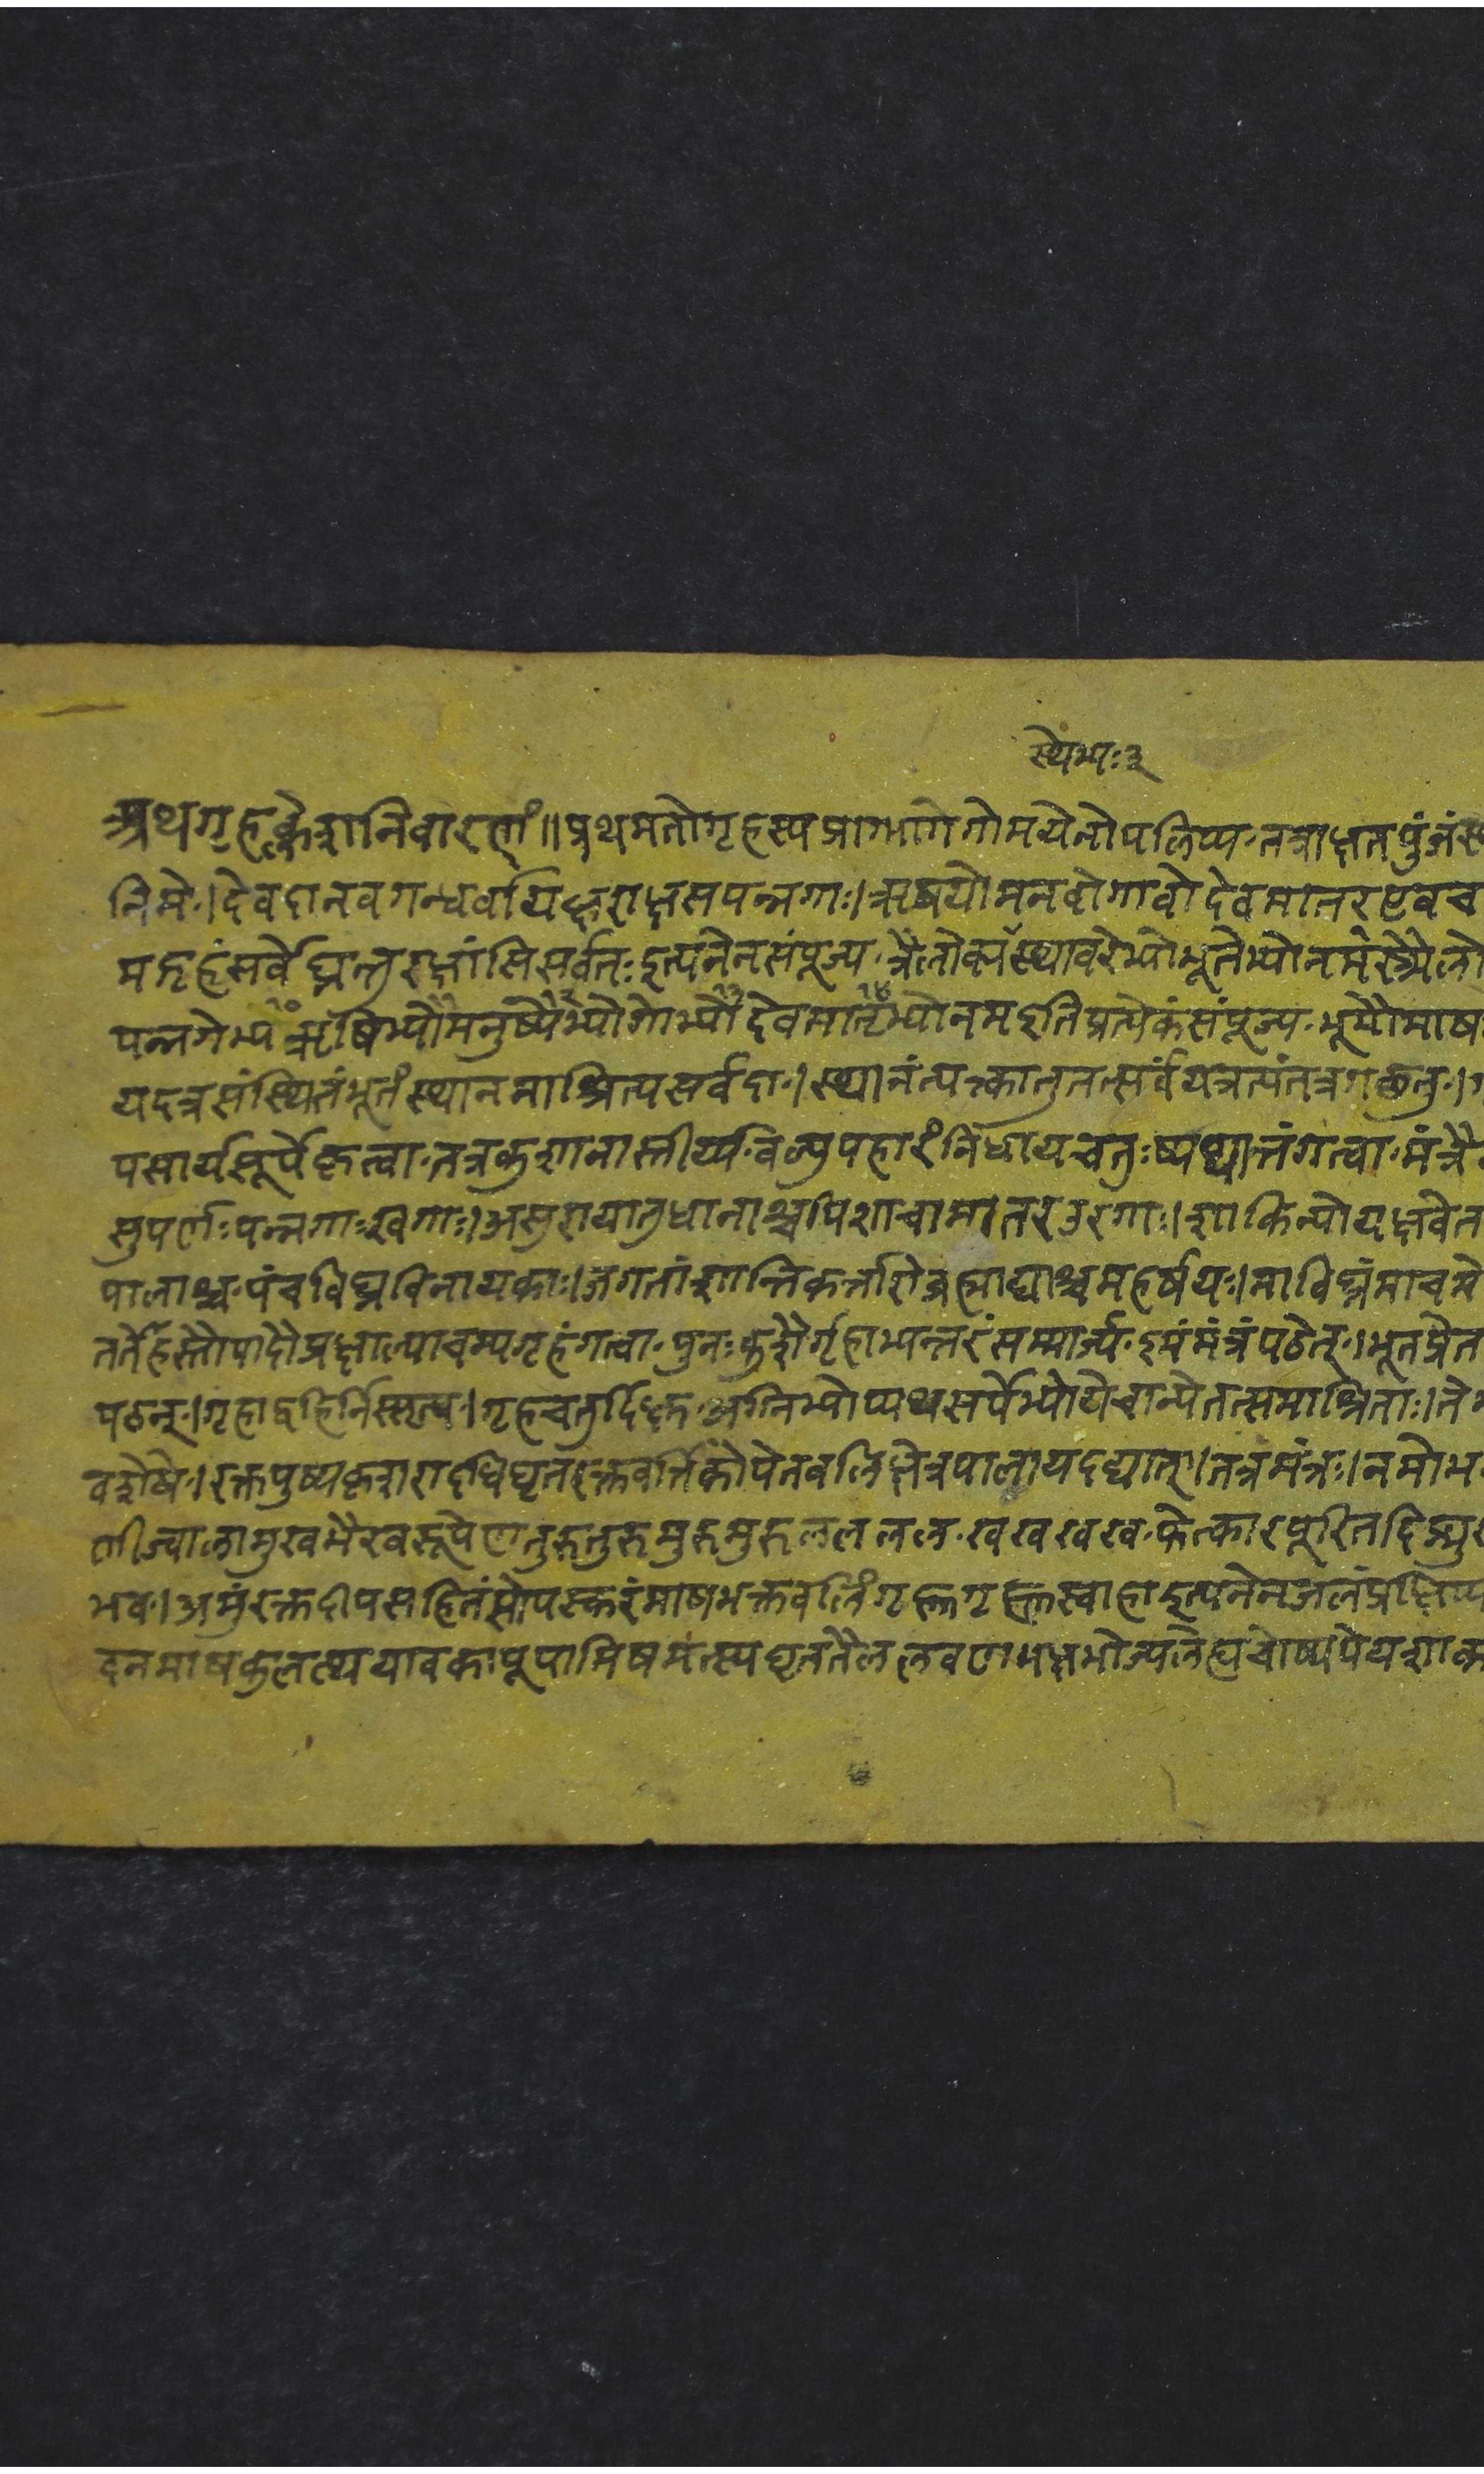 स्थेभ्यः३
अथगृहक्लेशनिवारणं॥प्रथमतोगृहस्यप्राग्भागेगोमयेनोपलिप्य·तत्राक्षतपुंजं
निमे·।देवदानवगन्धर्वायक्षराक्षसपन्नगाः।ऋषयोमनवोगावोदेवमातरएवच
मद्गृहंसर्वेघ्नन्तुरक्षांसिसर्वतःइत्यनेनसंपूज्य·त्रैलोक्यस्थावरेभ्योभूतेभ्योनमस्त्रैलो
पन्नगेभ्य१०ऋषिभ्यो११मनुष्येभ्यो१२गोभ्यो१३देवमातृभ्यो१४नमइतिप्रत्येकंसंपूज्य·भूमौमाष
यदत्रसंस्थितंभूतंस्थानमाश्रित्यसर्वदा·।स्थानंत्यक्त्कातुतत्सर्वंयत्रत्यंतत्रगछतु·।
पसार्यसूर्पेकृत्वा·तत्रकुशानास्तीर्य्य·वल्युपहारंनिधायचतुःष्पथान्तंगत्वा·मंत्रै
सुपर्णाःपन्नगाःखगाः।असुरायातुधानाश्चपिशाचामातरउरगाः।शाकिन्योयक्षवेत
पालाश्च·पंचविघ्नविनायकाः।जगतांशान्तिकर्त्तारोब्रह्माद्याश्चमहर्षयः।माविघ्नंमाचमे
ततोहस्तौपादौप्रक्षाल्याचम्यगृहंगत्वा·पुनःकुशैर्गृहाभ्यन्तरंसम्मार्ज्य·इमंमंत्रंपठेत्·।भूतप्रेत
पठन्·।गृहाद्वहिर्निस्सृत्य·।गृहचतुर्दिक्षु·अग्निभ्योप्यथसर्पेभ्योयेचान्येतत्समाश्रिताः।ते
वशेषे·।रक्तपुष्पकृशरादधिघृतरक्तवर्त्तिकोपेतवलिंक्षेत्रपालायदद्यात्।तत्रमंत्रः।नमोभ
णीज्वालामुखभैरवरूपेणतुरुतुरुमुरुमुरुललललल·खखखख·फेत्कारपूरितदिङ्मु
भव·।अमुंरक्तदीपसहितंसोपस्करंमाषभक्तवलिंगृह्णगृह्णस्वाहाइत्यनेनजलंप्रक्षिप्य
दनमाषकुलत्थयावकापूपामिषमत्स्यघृततैललवणभक्षभोज्यलेह्यचोष्यपेयशाक